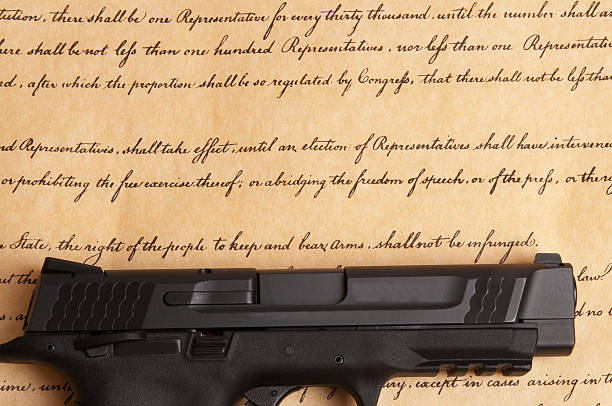 tution, there shall be one Representative for every thirty thousand, until the number shall a
here shall be not leſs than one hundred Representatives, nor leſs than one Representati
ed, after which the proportion shall be so regulated by Congreſs, that there shall not be leſs than
nd Representatives, shall take effect, until an election of Representatives shall have intervene
or prohibiting the free exercise thereof; or abridging the freedom of speech, or of the preſs, or the ri
e State, the right of the people to keep and bear Arms, shall not be infringed.
law
d no
ime, unt ury, except in cases arising in t